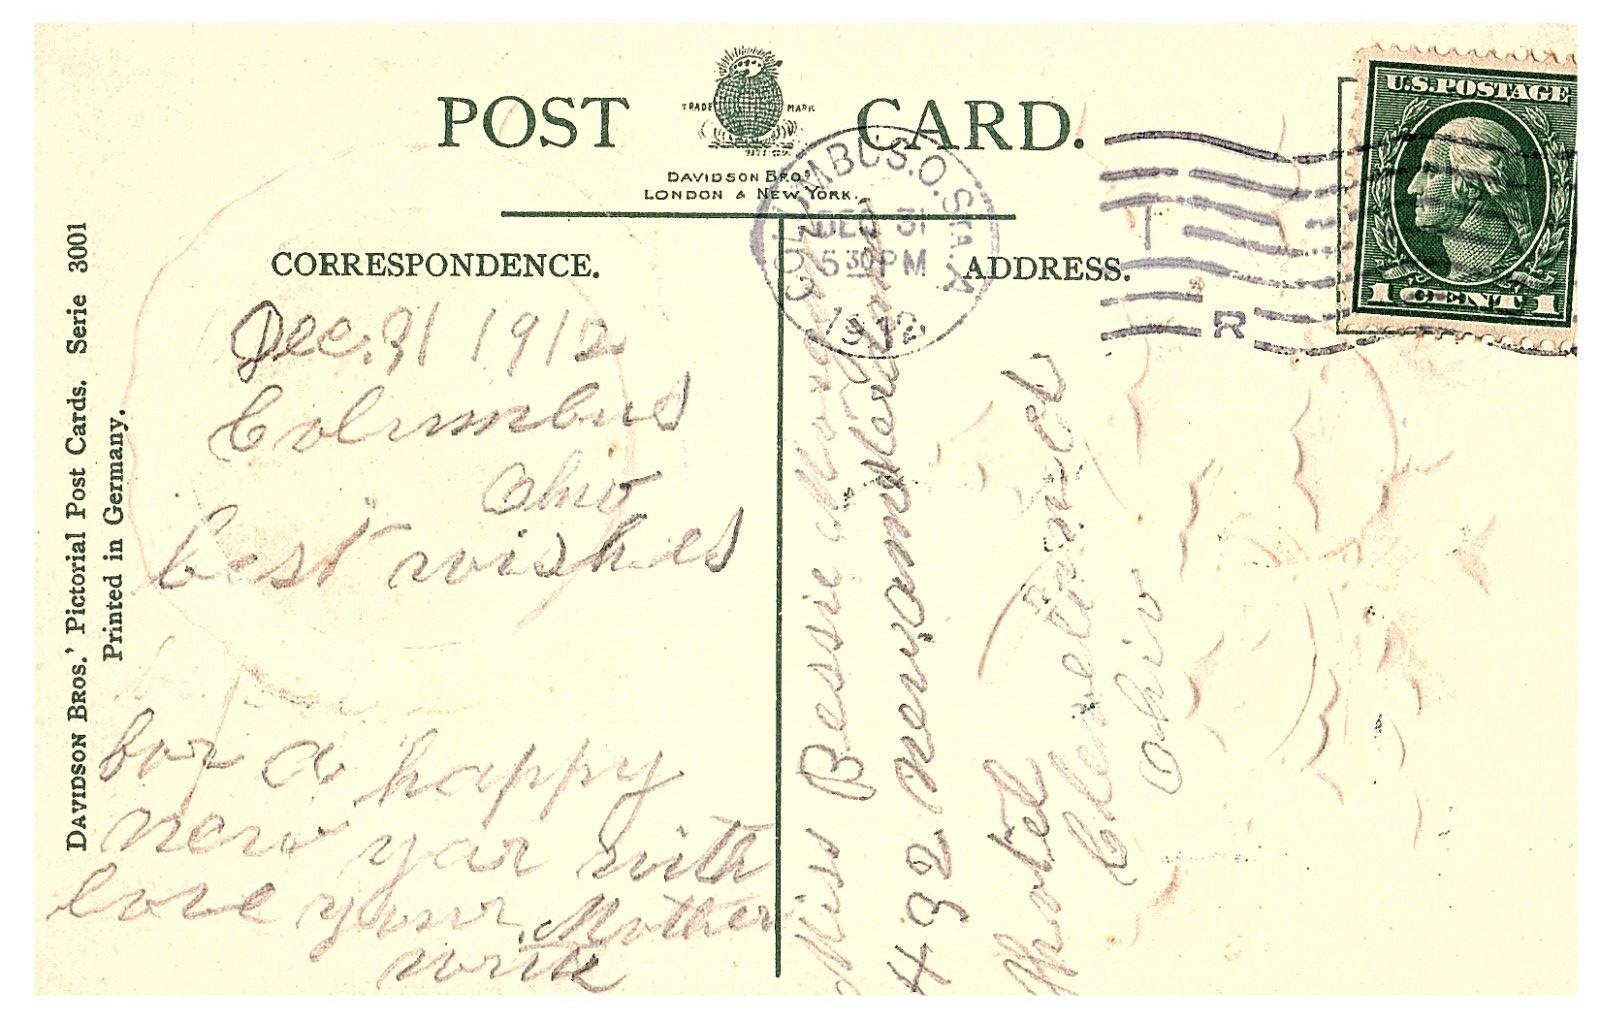 POST CARD.
TRADE MARK
DAVIDSON BROS.
LONDON & NEW YORK.
COLUMBUS, O. STA. A
DEC 31
530 PM
1912
R
U.S. POSTAGE
1 CENT 1
CORRESPONDENCE.
ADDRESS.
Dec. 31 1912
Columbus
Ohio
best wishes
for a happy
new year with
love your Mother
write
Miss Bessie
432
Hotel
Cleveland
Ohio
DAVIDSON BROS.' Pictorial Post Cards. Serie 3001
Printed in Germany.